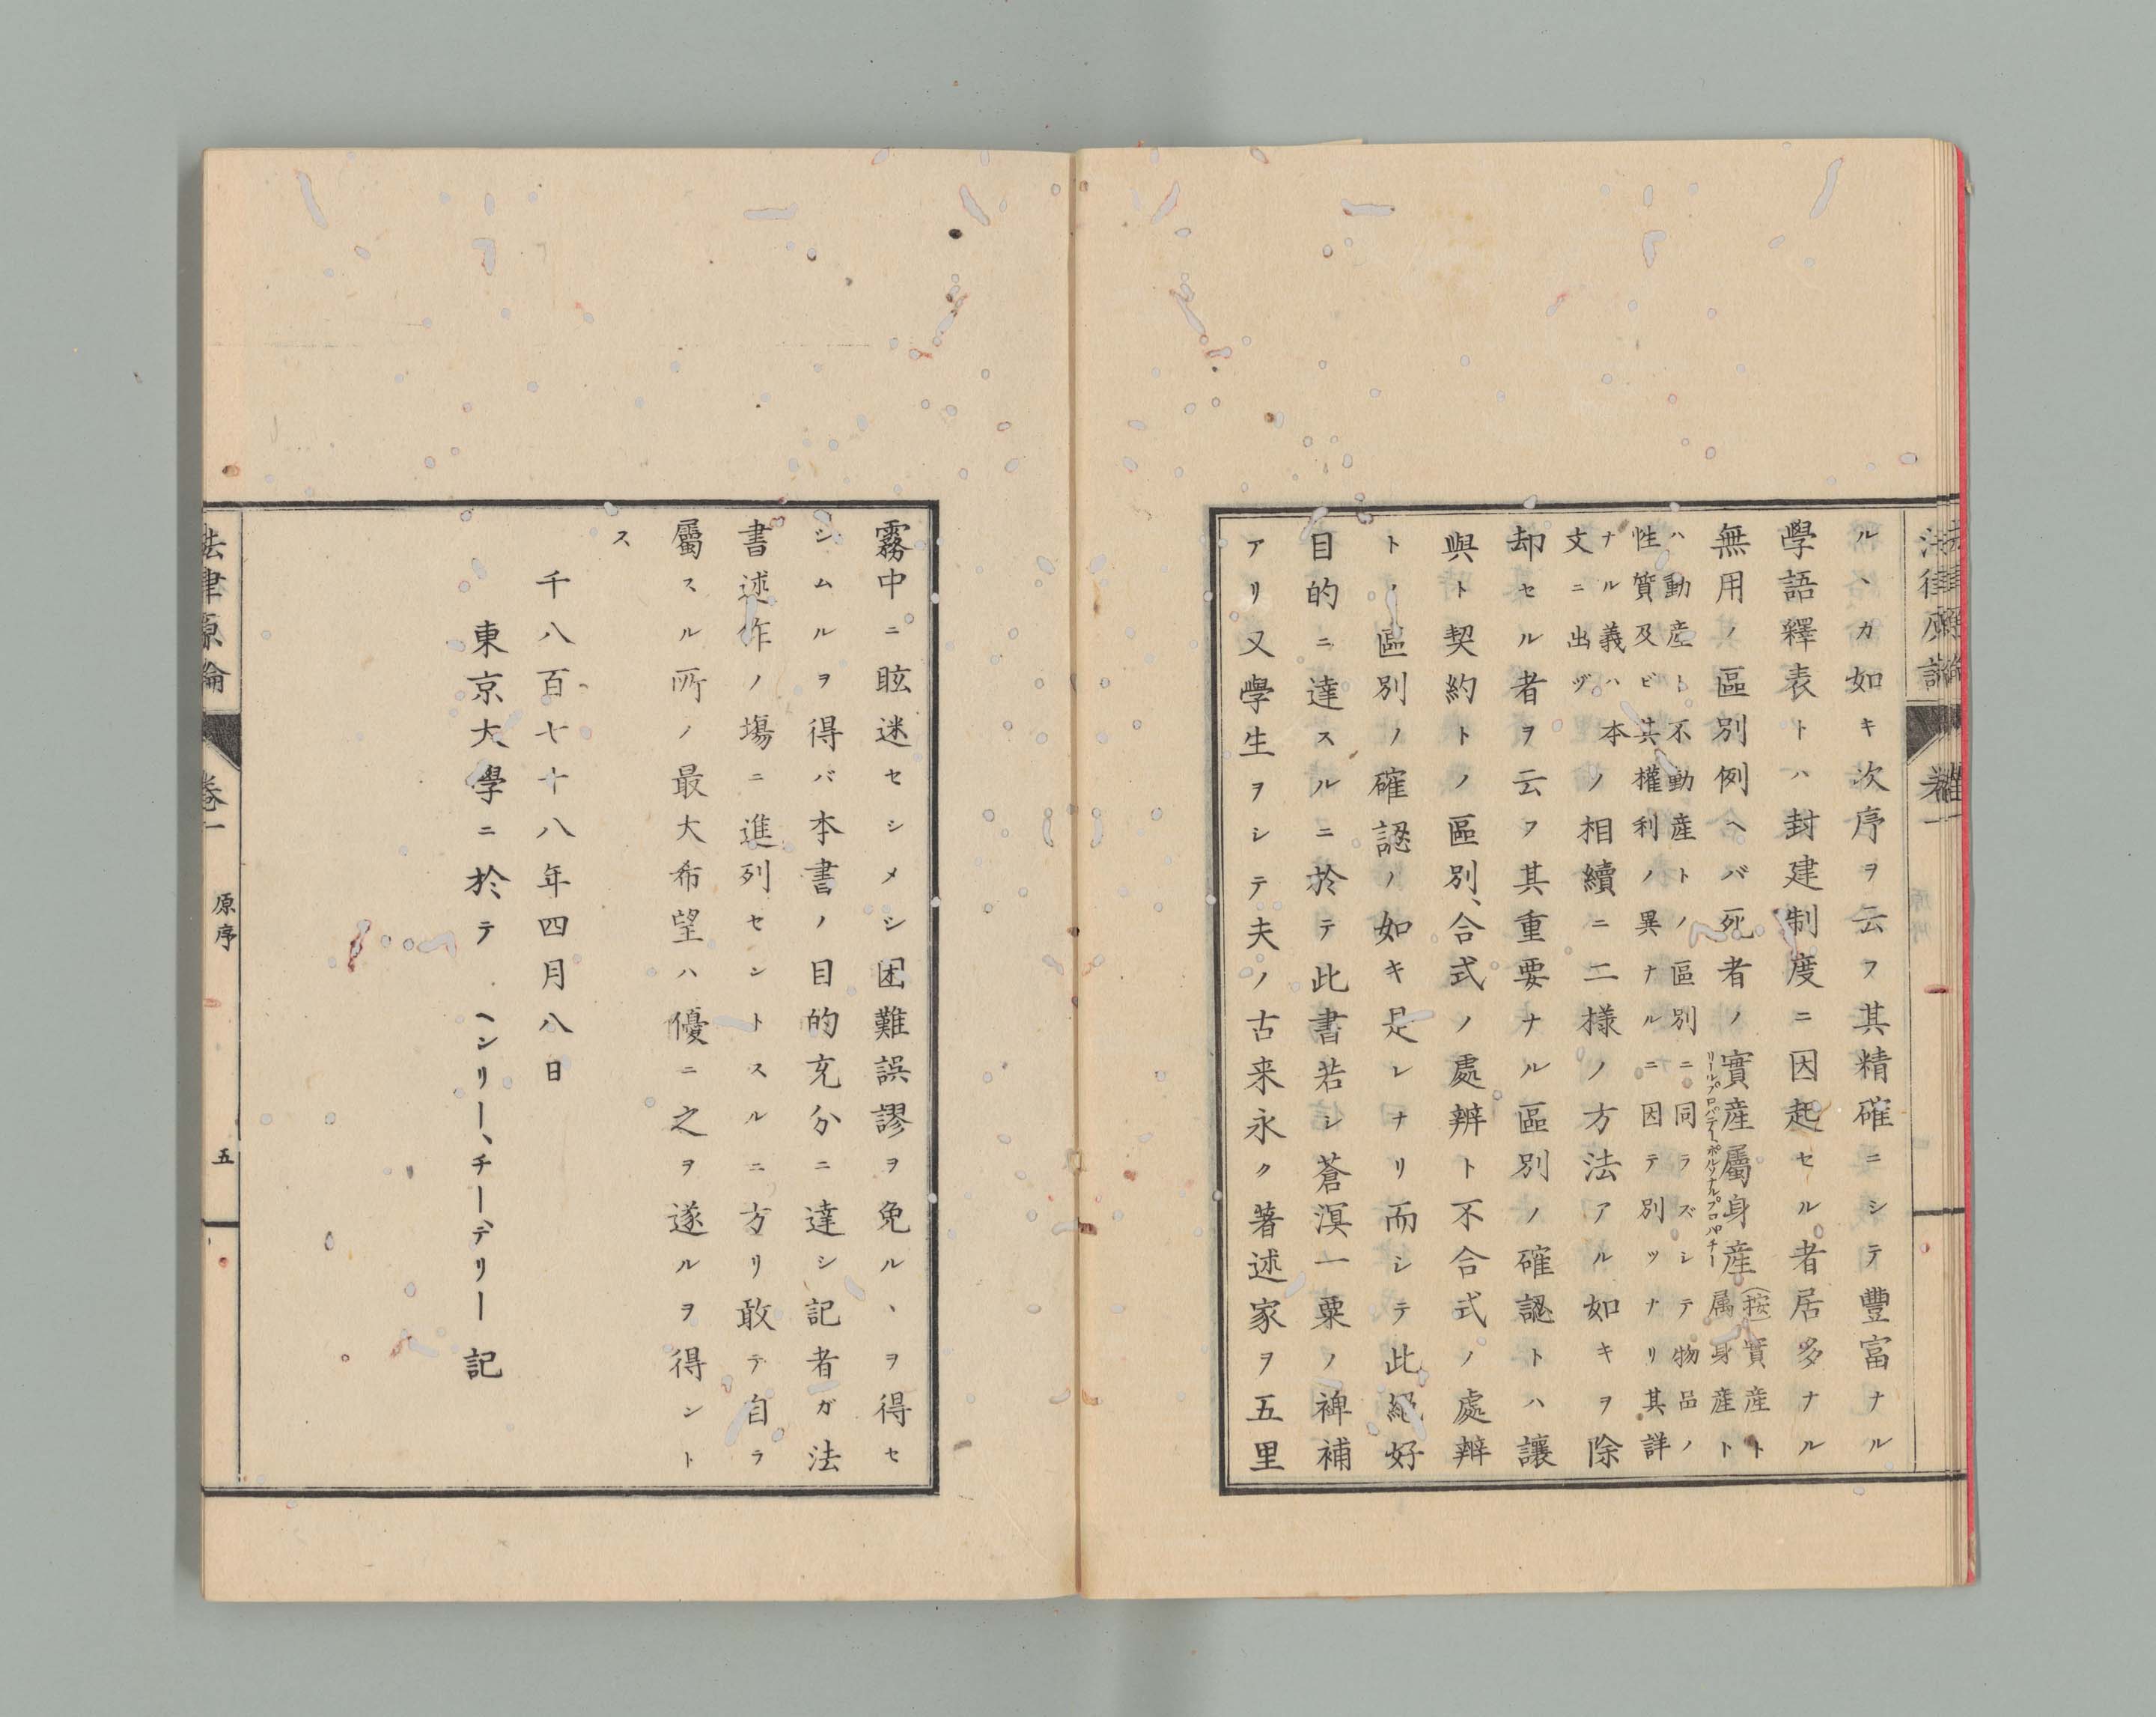 ルヽカ如キ次序ヲ云フ其精確ニシテ豐富ナル
學語釋表トハ封建制度ニ因起セル者居多ナル
無用ノ區別例ヘバ死者ノ實産屬身産(按實産ト属身産ト
リールプロパデー、ポルソナルプロパチー
ハ動産ト不動産トノ區別ニ同ラズシテ物品ノ
性質及ビ其權利ノ異ナルニ因テ別ツナリ其詳
ナル義ハ本
文ニ出ヅ
ノ相續ニ二様ノ方法アル如キヲ除
却セル者ヲ云フ其重要ナル區別ノ確認トハ讓
與ト契約トノ區別、合式ノ處辨ト不合式ノ處辨
トノ區別ノ確認ノ如キ是レナリ而シテ此絕好
目的ニ達スルニ於テ此書若シ蒼溟一粟ノ裨補
アリ又學生ヲシテ夫ノ古来永ク著述家ヲ五里
霧中ニ眩迷セシメシ困難誤謬ヲ免ルヽヲ得セ
シムルヲ得バ本書ノ目的充分ニ達シ記者ガ法
書述作ノ塲ニ進列セントスルニ方リ敢テ自ラ
屬スル所ノ最大希望ハ優ニ之ヲ遂ルヲ得ント
ス
千八百七十八年四月八日
東京大學ニ於テ ヘンリー、チー、デリー記
法律原論 卷一 原序 五